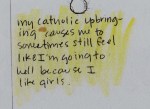 my catholic upbring-
ing causes me to
sometimes still feel
like I'm going to
hell because I
like girls.